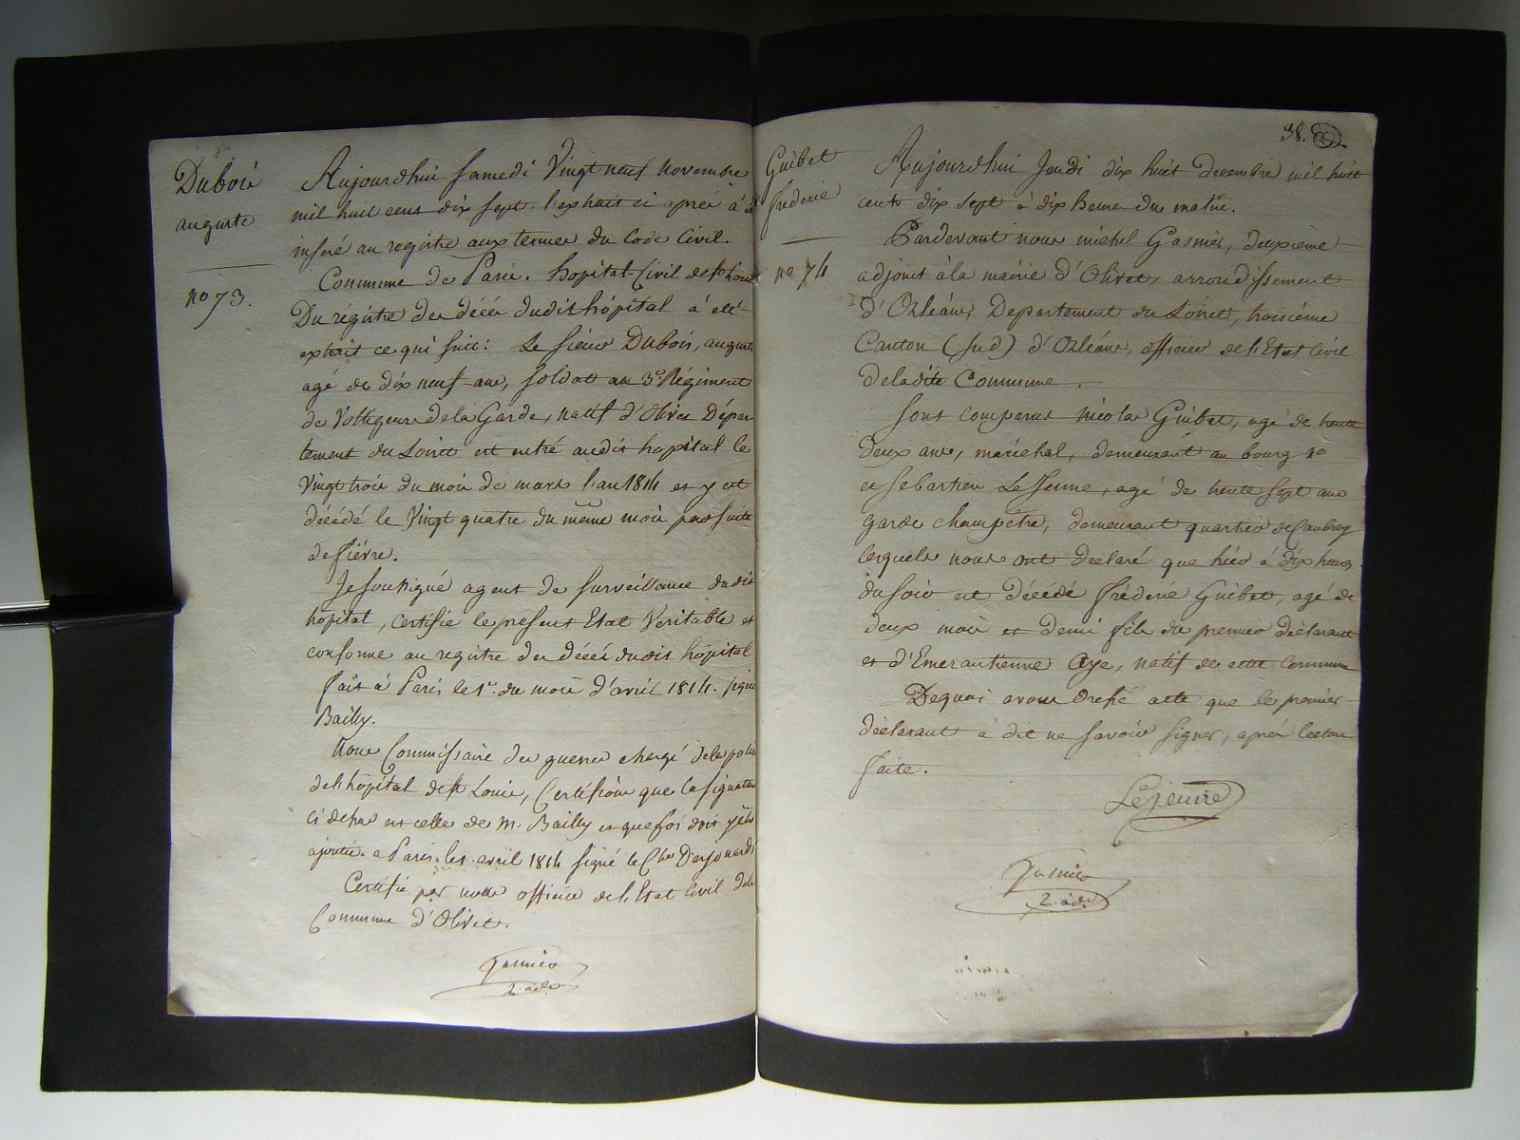 Dubois
auguste
no 73.
Aujourdhui Samedi Vingt neuf novembre
mil huit cens dix sept. l'extrait ci après à été
inséré au registre aux termes du Code Civil.
Commune de Paris. hopital Civil de St Louis
Du régistre des décès dudit hôpital à été
extrait ce qui suit: Le sieur Dubois, auguste
agé de dix neuf ans, soldat au 3e Régiment
de Voltigeurs de la Garde, natif d'Olivet Dépar
tement du Loiret est entré audit hopital le
Vingt trois du mois de mars l'an 1814 et y est
décédé le Vingt quatre du même mois par suite
de fièvre.
Je soussigné agent de surveillance dudit
hôpital, certifie le présent Etat Veritable et
conforme au registre des décès dudit hôpital
fait à Paris le 1er du mois d'avril 1814. signé
Bailly.
Nous Commissaire des guerres chargé de la police
de l'hôpital de St Louis, Certifions que la signature
ci dessus est celle de M. Bailly et que foi doit y être
ajoutée. a Paris. le 1. avril 1814 signé le Cher
Certifié par nous officier de l'Etat Civil de la
Commune d'Olivet.
Gasnier
2. adj.
38.
Guibet
frédéric
no 74
Aujourdhui Jeudi dix huit Decembre mil huit
cent dix sept à dix heures du matin.
Pardevant nous michel Gasnier, deuxième
adjoint à la mairie d'Olivet, arrondissement
d'Orléans, Departement du Loiret, troisième
Canton (sud) d'Orléans, officier de l'Etat Civil
de ladite Commune.
Sont comparus nicolas Guibet, agé de trente
deux ans, maréchal, demeurant au bourg
et sebastien Le Jeune, agé de trente sept ans
garde champêtre, demeurant quartier de Caubray
lesquels nous ont déclaré que hier à dix heures
du soir est décédé frédéric Guibet, agé de
deux mois et demi fils du premier déclarant
et d'Emerantienne Aye, natif de cette Commune
Dequoi avons dressé acte que le premier
déclarant a dit ne savoir signer, après lecture
faite.
Lejeune
Gasnier
2. adj.